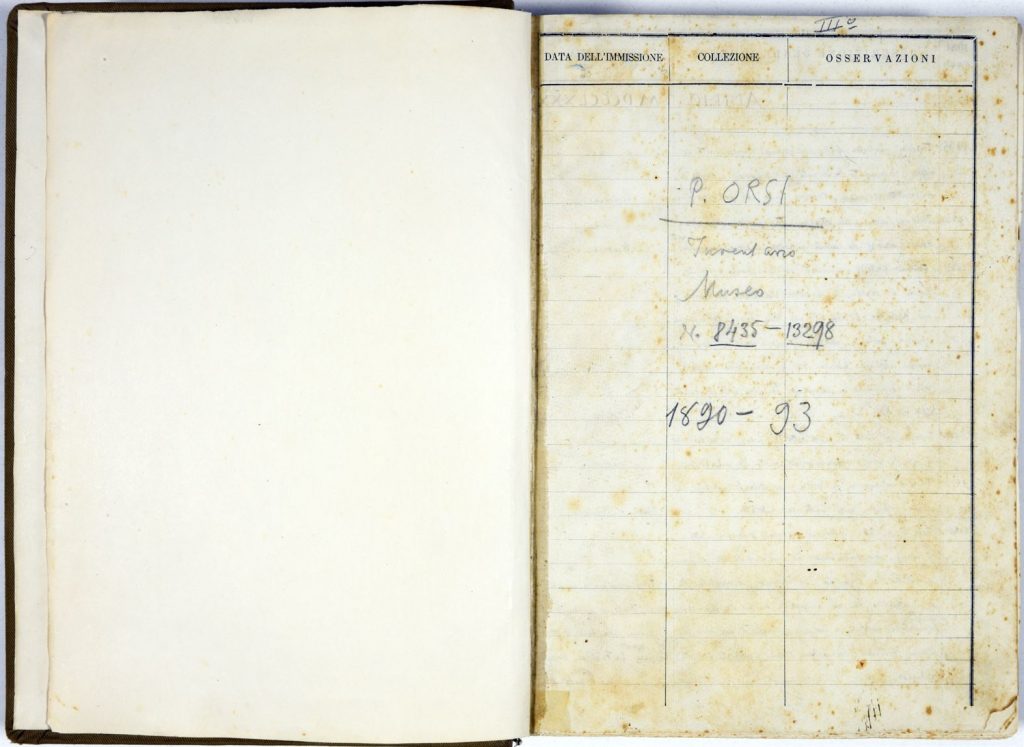 IIIº
DATA DELL'IMMISSIONE COLLEZIONE OSSERVAZIONI
P. ORSI
Inventario
Museo
N. 8435-13298
1890-93